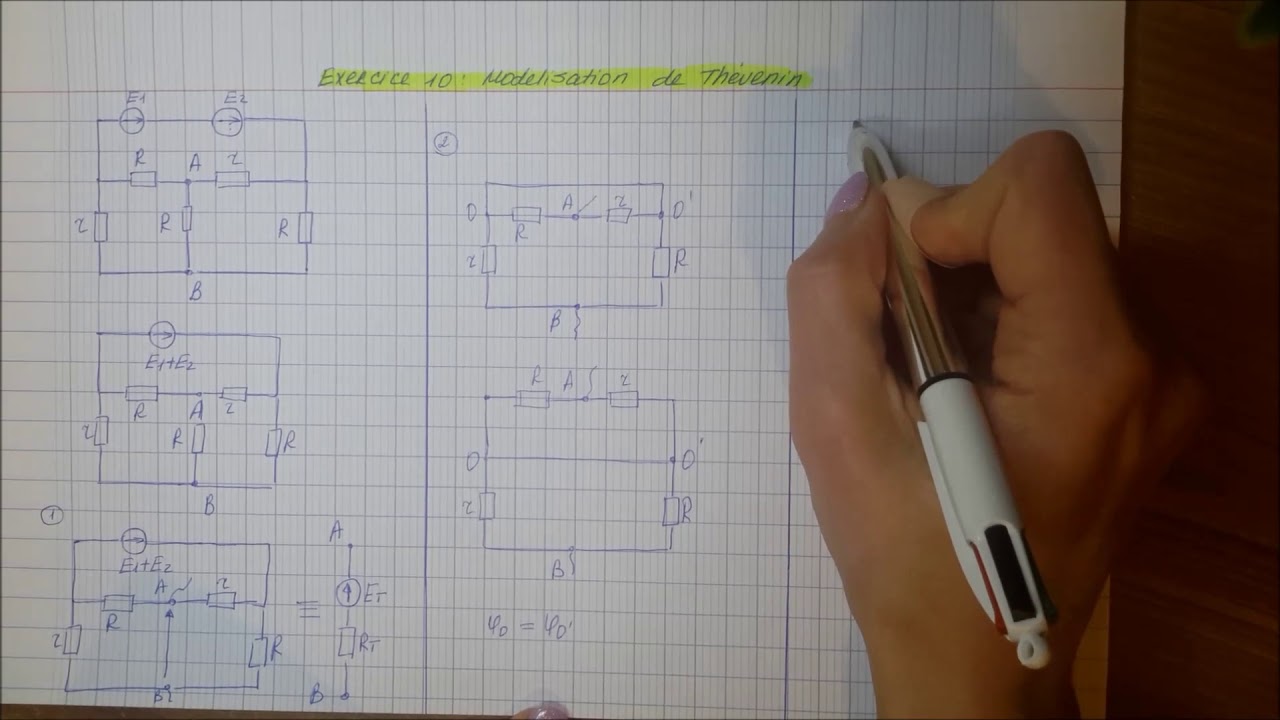 Exercice 10 : Modélisation de Thévenin
E1 E2
R A r
r R R
B
E1+E2
R A r
r R R
B
①
E1+E2
A r
R
r R
B
≡
A
ET
RT
B
②
O R A r O'
r R
B
R A r
O O'
r R
B
φO = φO'